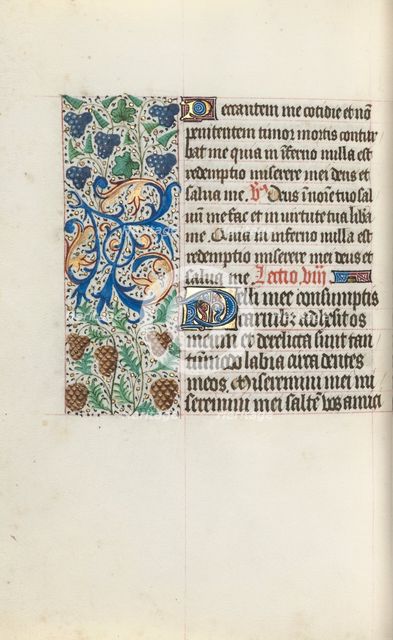 Peccantem me cotidie et nō
penitentem timor mortis contur
bat me quia in īferno nulla est
redemptio miserere mei deus et
salua me. V Deus ī noīe tuo sal
uū me fac et in virtute tua libera
me. Quia in inferno nulla est
redemptio miserere mei deus et
salua me. Lectio viij
Pelli mee consumptis
carnibꝫ adhesit os
meum et derelicta sunt tan
tūmodo labia circa dentes
meos. Miseremini mei mi
seremini mei saltē vos amici